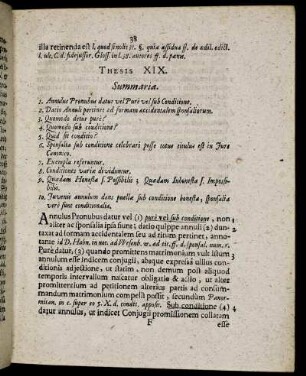 38
illa retinenda est l. quod simile 31. §. quia assidua ff. de ædil. edict.
l. ult. C. d. fidejussor. Gloss. in l. 38. autores ff. d. pœnis.
THESIS XIX.
Summaria.
1. Annulus Pronubus datur vel Pure vel sub Conditione.
2. Datio Annuli pertinet ad formam accidentalem sponsaliorum.
3. Quomodo detur pure?
4. Quomodo sub conditione?
5. Quid sit conditio?
6. Sponsalia sub conditione celebrari posse totus titulus est in Jure
Canonico.
7. Exempla referuntur.
8. Conditiones variæ dividuntur.
9. Quædam Honestæ s. Possibiles; Quædam Inhonestæ s. Impossi-
biles.
10. Juvenis annulum dans puellæ sub conditione honesta, sponsalia
verè sunt conditionalia.
Annulus Pronubus datur vel (1) purè vel sub conditione, non 1
alter ac sponsalia ipsa sunt; datio quippe annuli (2) dun-
taxat ad formam accidentalem seu ad ritum pertinet, annotan-
te id D. Hahn. in not. ad Wesenb. w. ad tit. ff. d. sponsal. num. 1.
Purè datur, (3) quando promittens matrimonium vult illum
annulum esse indicem conjugii, absque expressa ullius condi-
tionis adjectione, ut statim, non demum post aliquod
temporis intervallum nascatur obligatio & actio, ut altero
promittentium ad petitionem alterius partis ad consum-
mandum matrimonium compelli possit, secundùm Panor-
mitan. in c. super eo 5. X. d. condit. apposit. Sub conditione (4) 4
datur annulus, ut indicet Conjugii promissionem collatam
F esse